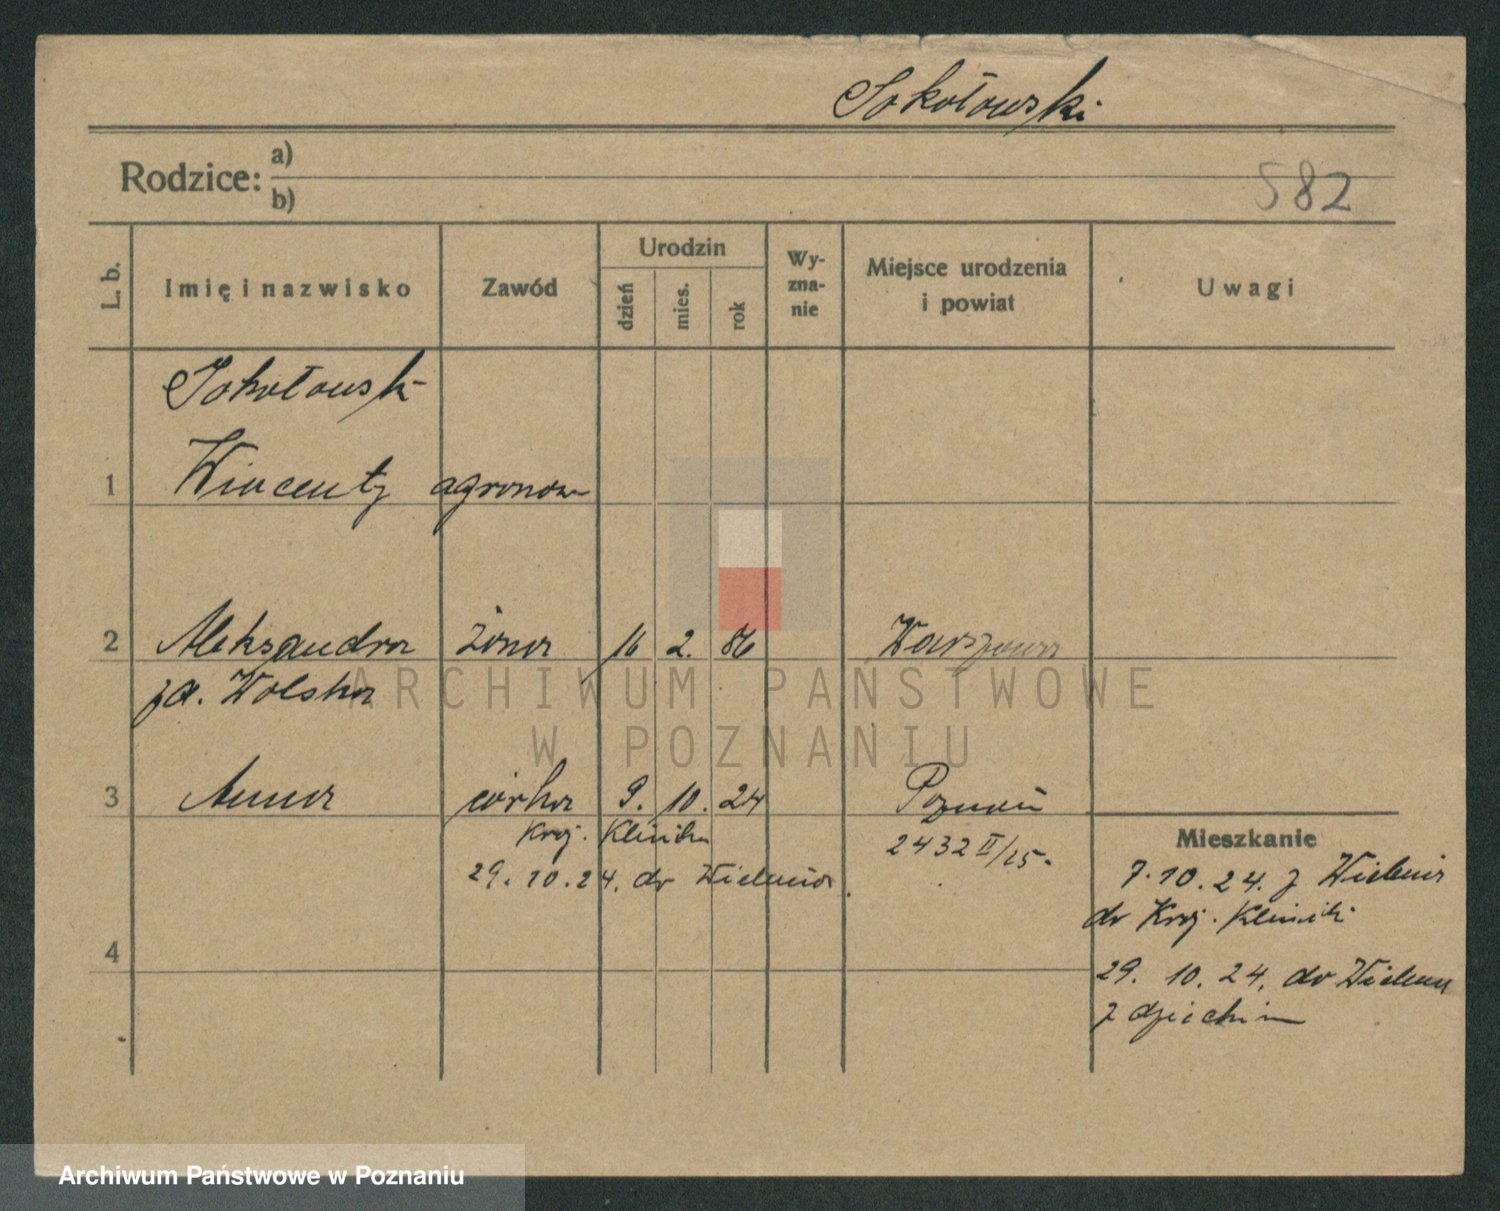 Sokołowski
Rodzice: a)
b)
582
L. b.
Imię i nazwisko
Zawód
Urodzin
dzień
mies.
rok
Wy-
zna-
nie
Miejsce urodzenia
i powiat
Uwagi
Sokołowski
1 Wincenty agronom
2 Aleksandra żona 16 2. 86 Warszawa
za. Wolska
ARCHIWUM PAŃSTWOWE
W POZNANIU
3 Anna córka 9. 10. 24 Poznań
Kraj. Klinika
2432 II/25.
Mieszkanie
29. 10. 24. do
7. 10. 24. z
do Kraj. Kliniki
4
29. 10. 24. do
z dzieckiem
Archiwum Państwowe w Poznaniu